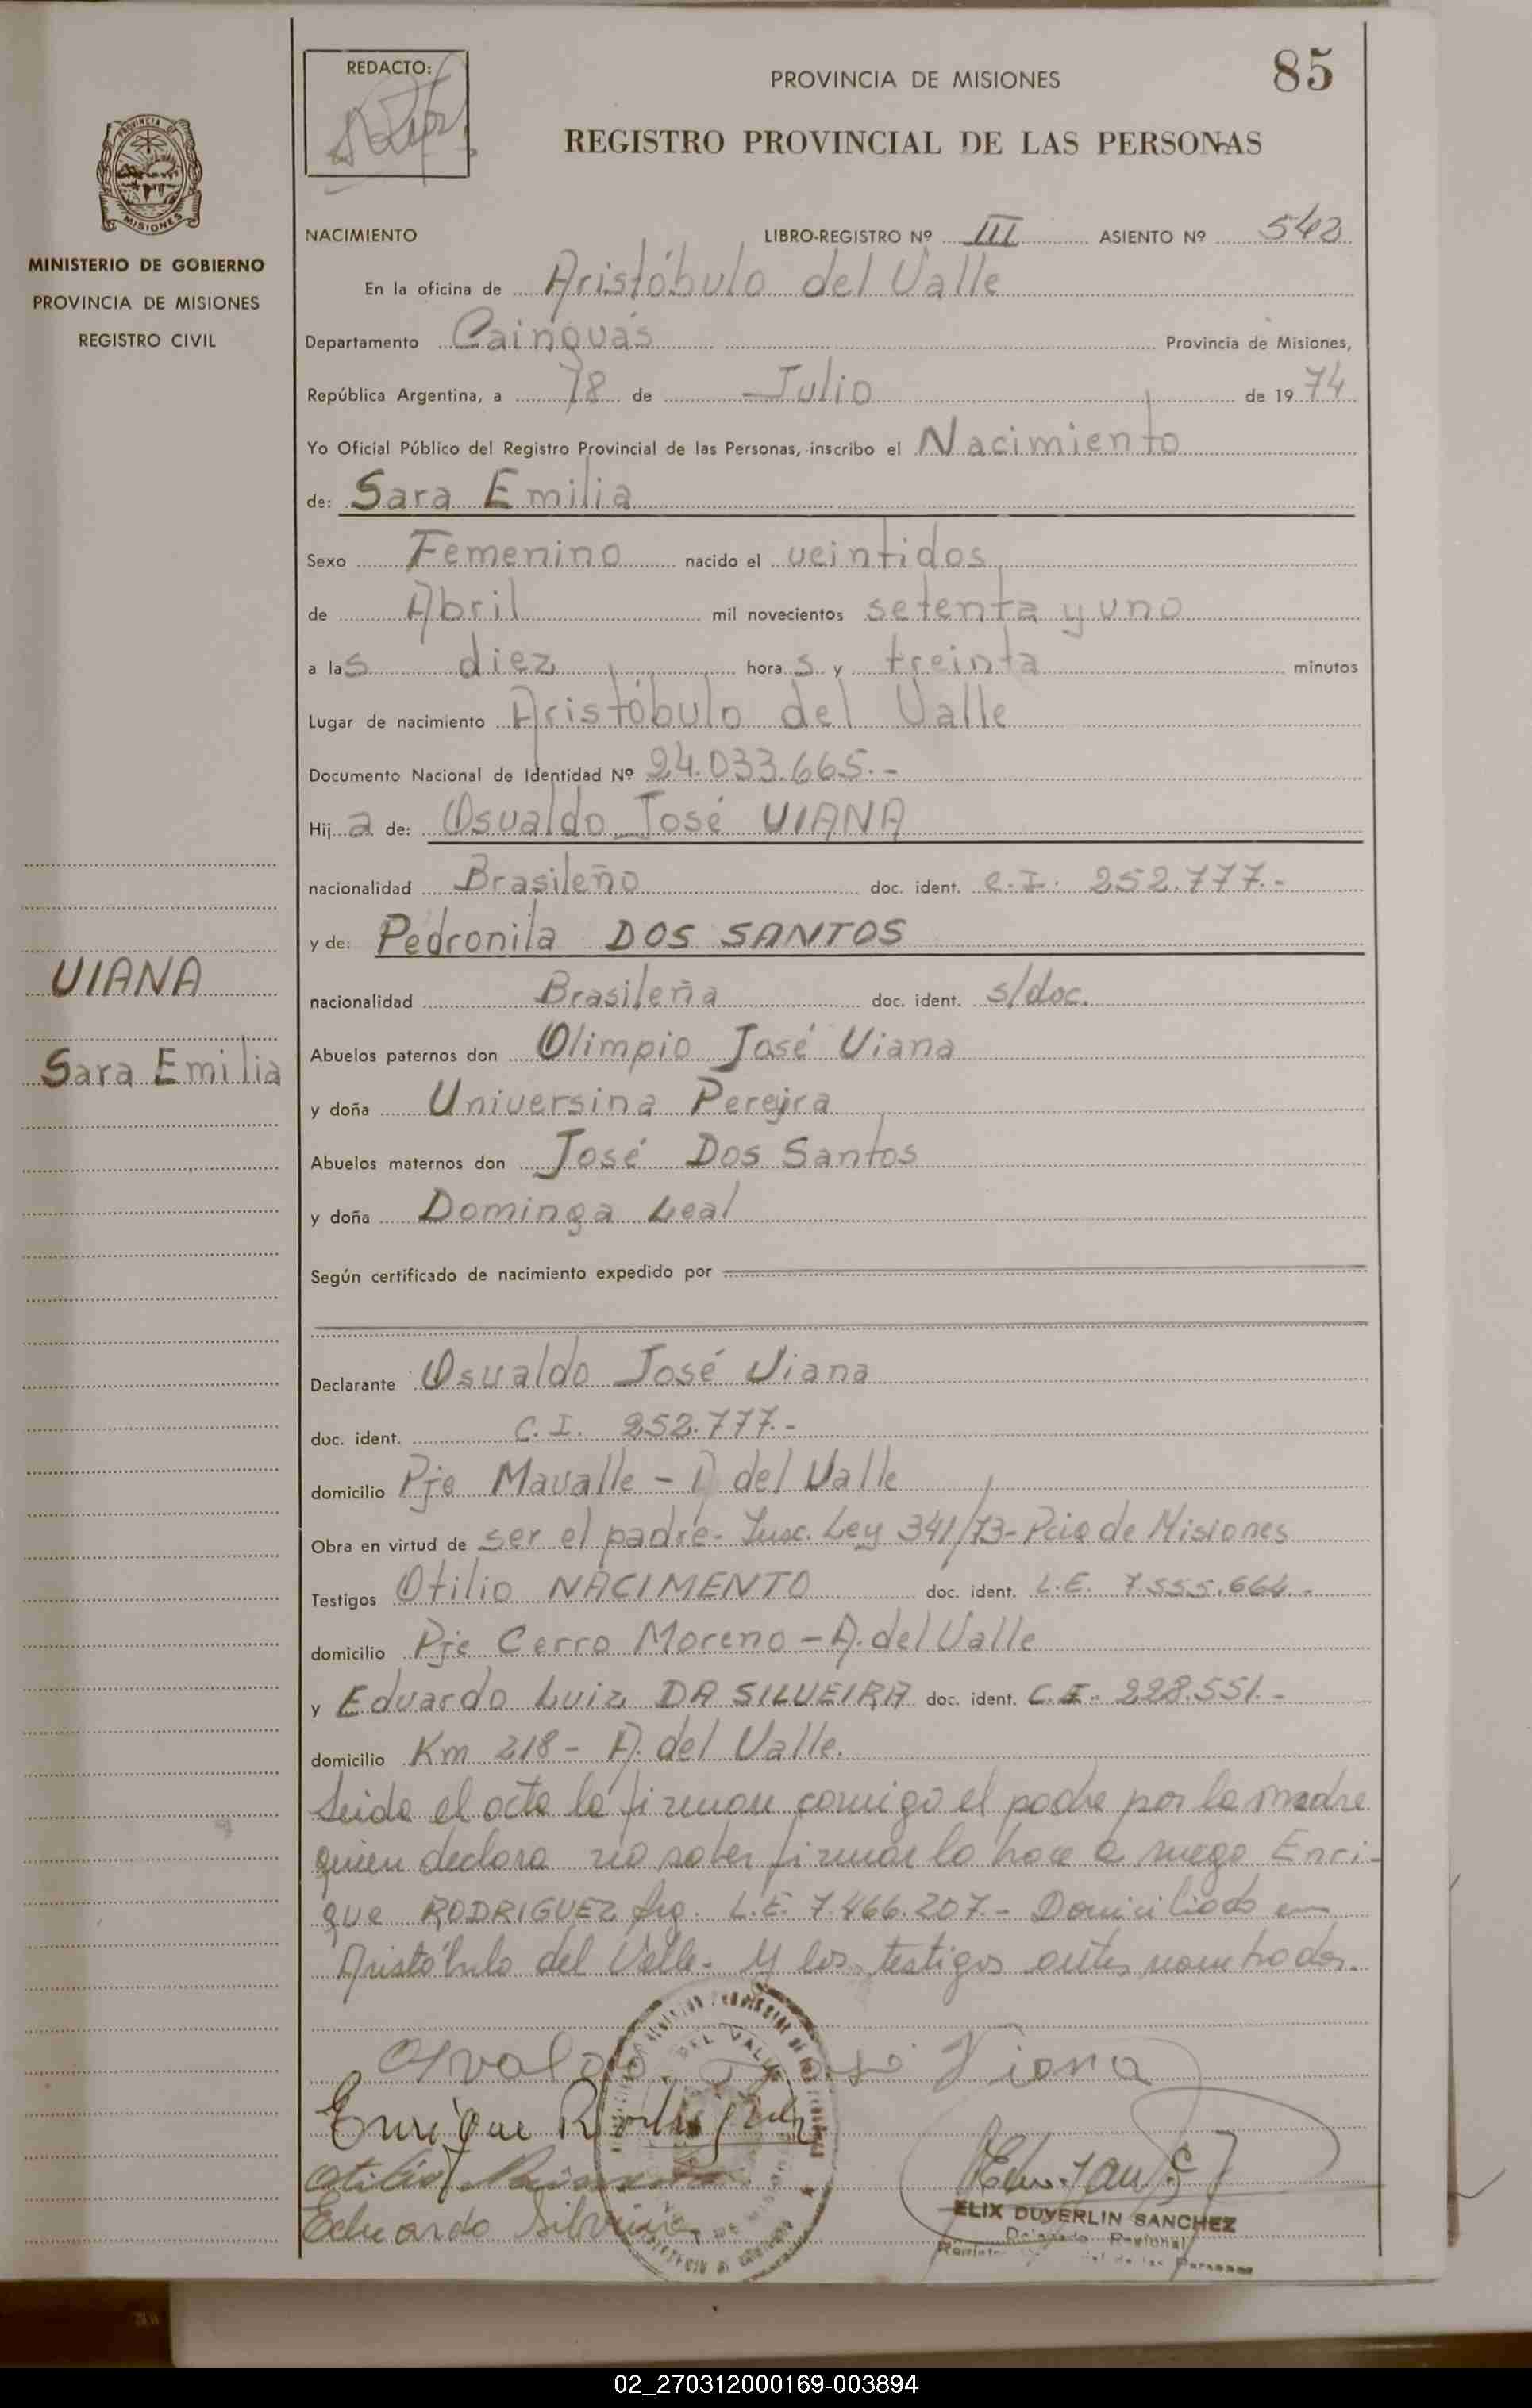 REDACTO:
PROVINCIA DE MISIONES
85
REGISTRO PROVINCIAL DE LAS PERSONAS
MISIONES
MINISTERIO DE GOBIERNO
PROVINCIA DE MISIONES
REGISTRO CIVIL
NACIMIENTO LIBRO-REGISTRO Nº III ASIENTO Nº 542
En la oficina de Aristóbulo del Valle
Departamento Cainguás Provincia de Misiones,
República Argentina, a 18 de Julio de 19 74
Yo Oficial Público del Registro Provincial de las Personas, inscribo el Nacimiento
de: Sara Emilia
Sexo Femenino nacido el veintidos
de Abril mil novecientos setenta y uno
a las diez horas y treinta minutos
Lugar de nacimiento Aristóbulo del Valle
Documento Nacional de Identidad Nº 24.033.665.-
Hija de: Osvaldo José VIANA
nacionalidad Brasileño doc. ident. C.I. 252.777.-
y de: Pedronila DOS SANTOS
nacionalidad Brasileña doc. ident. s/doc.
VIANA
Sara Emilia
Abuelos paternos don Olimpio José Viana
y doña Universina Pereira
Abuelos maternos don José Dos Santos
y doña Dominga Leal
Según certificado de nacimiento expedido por
Declarante Osvaldo José Viana
doc. ident. C.I. 252.777.-
domicilio Pje Mavalle - A del Valle
Obra en virtud de ser el padre- Insc. Ley 341/73- Pcia de Misiones
Testigos Otilio NACIMENTO doc. ident. L.E. 7.555.664.-
domicilio Pje Cerro Moreno - A. del Valle
y Eduardo Luiz DA SILVEIRA doc. ident. C.I. 228.551.-
domicilio Km 218 - A. del Valle.
Leida el acta la firman comigo el padre por la madre
quien declara no saber firmar lo hace a ruego Enri-
que RODRIGUEZ Arg. L.E. 7.466.207.- Domiciliado en
Aristóbulo del Valle- y los testigos antes nombrados.
Osvaldo José Viana
Enrique Rodriguez
Eduardo Silveira
ELIX DUVERLIN SANCHEZ
Delegado Regional
de las Personas
02_270312000169-003894